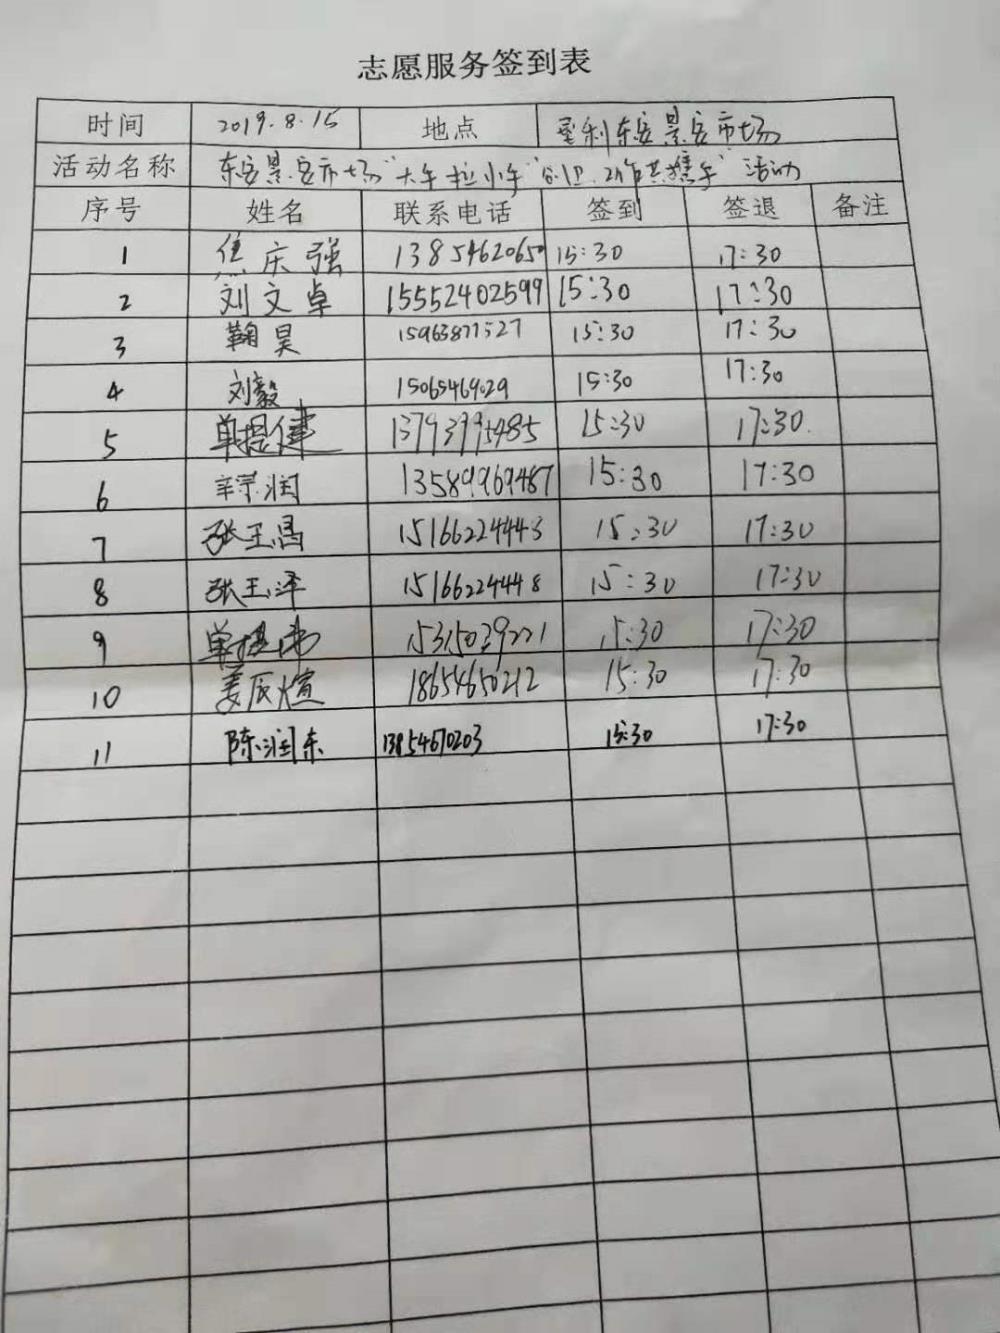 志愿服务签到表
时间 2019.8.15 地点 垦利东安景安市场
活动名称 东安景安市场"大手拉小手""创卫工作共携手"活动
序号 姓名 联系电话 签到 签退 备注
1 焦庆强 13854620650 15:30 17:30
2 刘文卓 15552402599 15:30 17:30
3 鞠昊 15963877527 15:30 17:30
4 刘毅 15065469029 15:30 17:30
5 单提健 13793995485 15:30 17:30.
6 辛荣润 13589969487 15:30 17:30
7 张玉昌 15166224443 15:30 17:30
8 张玉泽 15166224448 15:30 17:30
9 单 15315039221 15:30 17:30
10 姜辰煊 18654650212 15:30 17:30
11 陈润东 13854670203 15:30 17:30